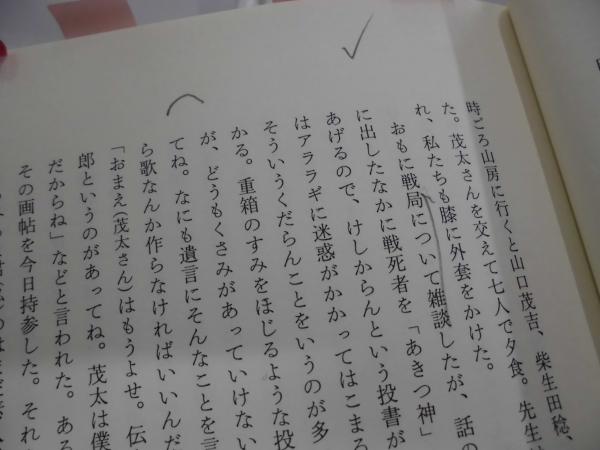 時ごろ山房に行くと山口茂吉、柴生田稔、
た。茂太さんを交えて七人で夕食。先生は
れ、私たちも膝に外套をかけた。
おもに戦局について雑談したが、話の
に出したなかに戦死者を「あきつ神」
あげるので、けしからんという投書が
はアララギに迷惑がかかってはこまる
そういうくだらんことをいうのが多
かる。重箱のすみをほじるような投
が、どうもくさみがあっていけない
てね。なにも遺言にそんなことを言
ら歌なんか作らなければいいんだ
「おまえ(茂太さん)はもうよせ。伝
郎というのがあってね。茂太は僕
だからね」などと言われた。ある
その画帖を今日持参した。それ